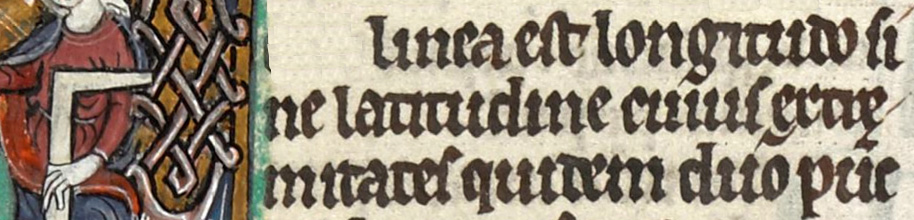 linea est longitudo si
ne latitudine cuius extre
mitates quidem duo pūc